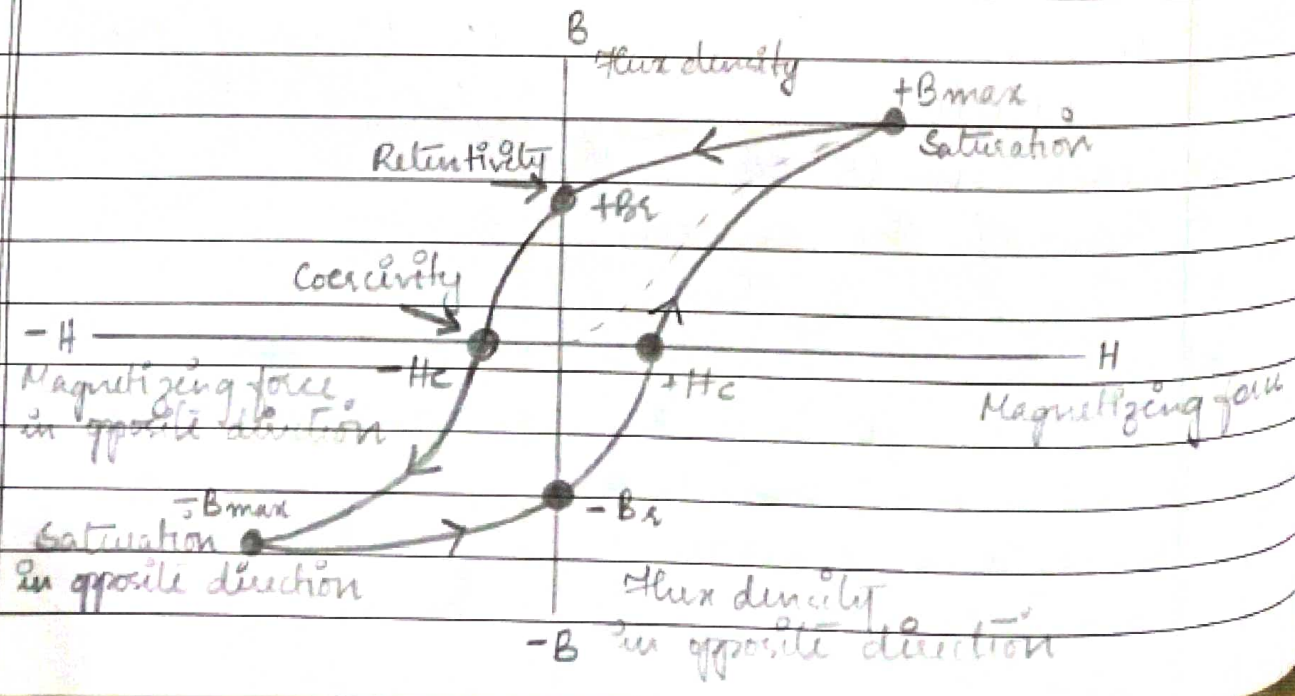 B
Flux density
+Bmax
Saturation
Retentivity
+Br
Coercivity
-H
H
-Hc
+Hc
Magnetizing force
in opposite direction
Magnetizing force
-Bmax
-Br
Saturation
in opposite direction
Flux density
-B in opposite direction